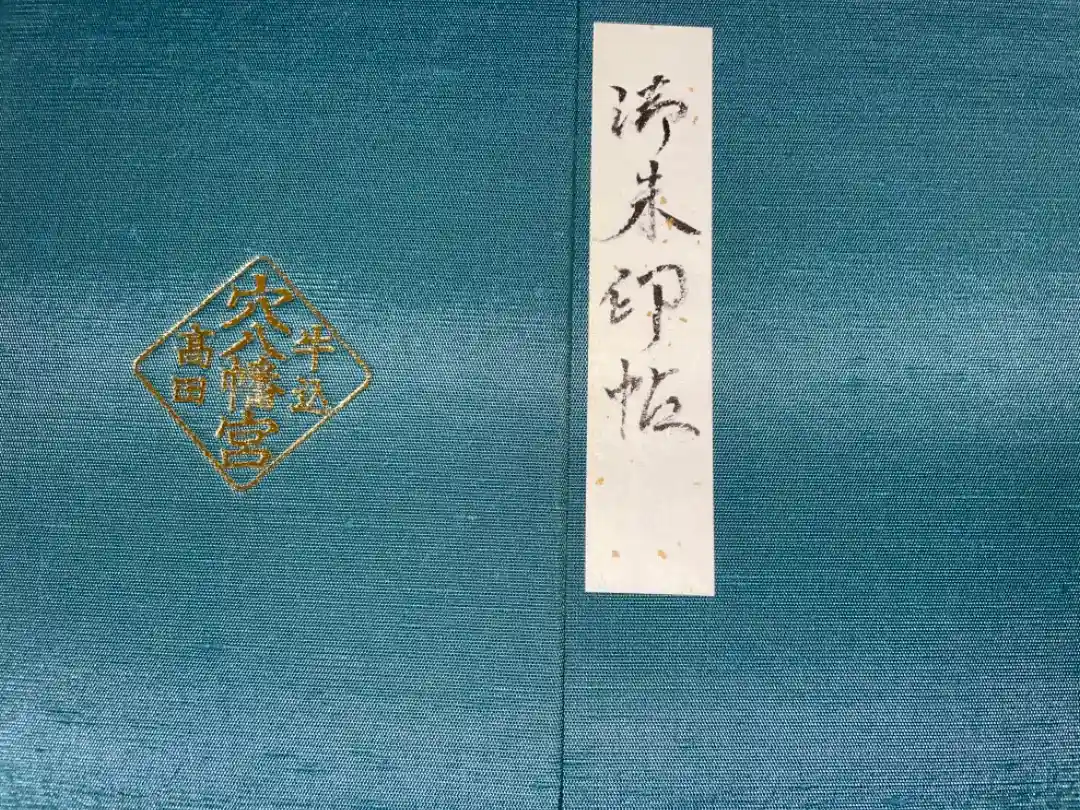 御朱印帖
牛込
穴八幡宮
高田